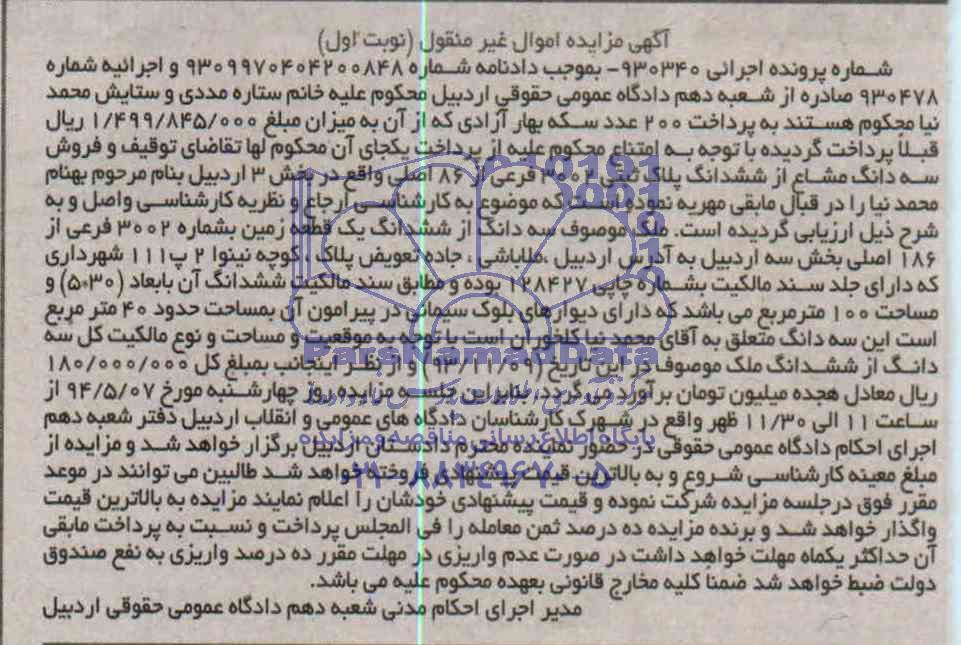 آگهی مزایده اموال غیر منقول (نوبت اول)
شماره پرونده اجرائی ۹۳۰۳۴۰- بموجب دادنامه شماره ۹۳۰۹۹۷۰۴۰۴۲۰۰۸۴۸ و اجرائیه شماره
۹۳۰۴۷۸ صادره از شعبه دهم دادگاه عمومی حقوقی اردبیل محکوم علیه خانم ستاره مددی و ستایش محمد
نیا محکوم هستند به پرداخت ۲۰۰ عدد سکه بهار آزادی که از آن به میزان مبلغ ۱/۴۹۹/۸۴۵/۰۰۰ ریال
قبلا پرداخت گردیده با توجه به امتناع محکوم علیه از پرداخت یکجای آن محکوم لها تقاضای توقیف و فروش
سه دانگ مشاع از ششدانگ پلاک ثبتی ۳۰۰۲ فرعی از ۸۶ اصلی واقع در بخش ۳ اردبیل بنام مرحوم بهنام
محمد نیا را در قبال مابقی مهریه نموده است که موضوع به کارشناسی ارجاع و نظریه کارشناسی واصل و به
شرح ذیل ارزیابی گردیده است. ملک موصوف سه دانگ از ششدانگ یک قطعه زمین بشماره ۳۰۰۲ فرعی از
۱۸۶ اصلی بخش سه اردبیل به آدرس اردبیل ،ملاباشی ، جاده تعویض پلاک ، کوچه نینوا ۲ پ۱۱۱ شهرداری
که دارای جلد سند مالکیت بشماره چاپی ۱۲۸۴۲۷ بوده و مطابق سند مالکیت ششدانگ آن بابعاد (۵*۳۰) و
مساحت ۱۰۰ مترمربع می باشد که دارای دیوارهای بلوک سیمانی در پیرامون آن بمساحت حدود ۴۰ متر مربع
است این سه دانگ متعلق به آقای محمد نیا کلخوران است با توجه به موقعیت و مساحت و نوع مالکیت کل سه
دانگ از ششدانگ ملک موصوف در این تاریخ (۹۳/۱۱/۰۹) و از نظر اینجانب بمبلغ کل ۱۸۰/۰۰۰/۰۰۰
ریال معادل هجده میلیون تومان برآورد می گردد، بنابراین جلسه مزایده روز چهارشنبه مورخ ۹۴/۵/۰۷ از
ساعت ۱۱ الی ۱۱/۳۰ ظهر واقع در شهرک کارشناسان دادگاه های عمومی و انقلاب اردبیل دفتر شعبه دهم
اجرای احکام دادگاه عمومی حقوقی در حضور نماینده محترم دادستان اردبیل برگزار خواهد شد و مزایده از
مبلغ معینه کارشناسی شروع و به بالاترین قیمت پیشنهادی فروخته خواهد شد طالبین می توانند در موعد
مقرر فوق درجلسه مزایده شرکت نموده و قیمت پیشنهادی خودشان را اعلام نمایند مزایده به بالاترین قیمت
واگذار خواهد شد و برنده مزایده ده درصد ثمن معامله را فی المجلس پرداخت و نسبت به پرداخت مابقی
آن حداکثر یکماه مهلت خواهد داشت در صورت عدم واریزی در مهلت مقرر ده درصد واریزی به نفع صندوق
دولت ضبط خواهد شد ضمنا کلیه مخارج قانونی بعهده محکوم علیه می باشد.
مدیر اجرای احکام مدنی شعبه دهم دادگاه عمومی حقوقی اردبیل
ParsNamadData
پایگاه اطلاع رسانی مناقصه و مزایده